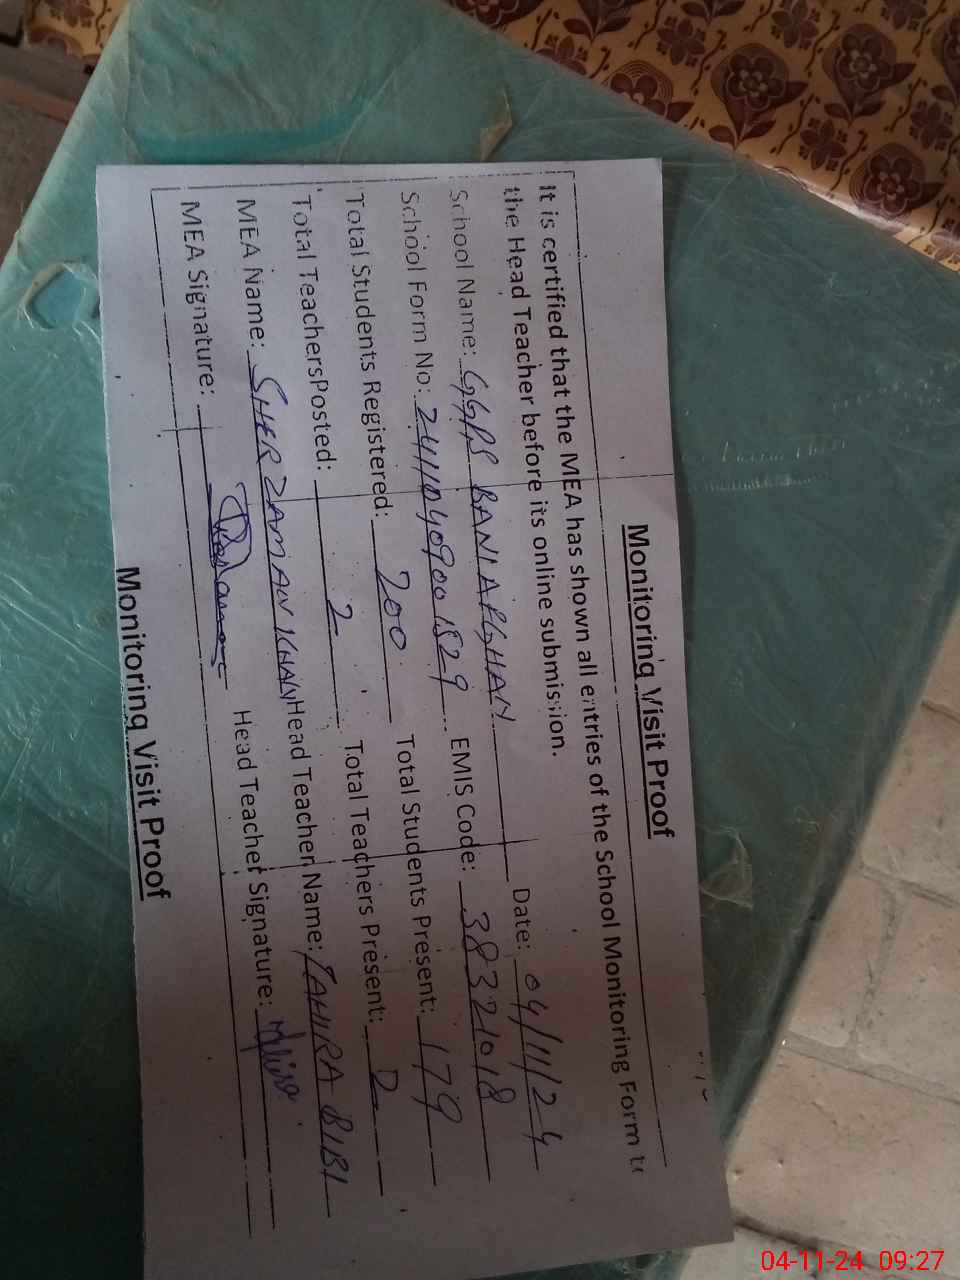 Monitoring Visit Proof
It is certified that the MEA has shown all entries of the School Monitoring Form to
the Head Teacher before its online submission.
School Name: GGPS BANI APGHAN Date: 04/11/24
School Form No: 24110409001529 EMIS Code: 38321018
Total Students Registered: 200 Total Students Present: 179
Total TeachersPosted: 2 Total Teachers Present: 2
MEA Name: SHER ZAMAN KHAN Head Teacher Name: TAHIRA BIBI
MEA Signature: Head Teacher Signature:
Monitoring Visit Proof
04-11-24 09:27